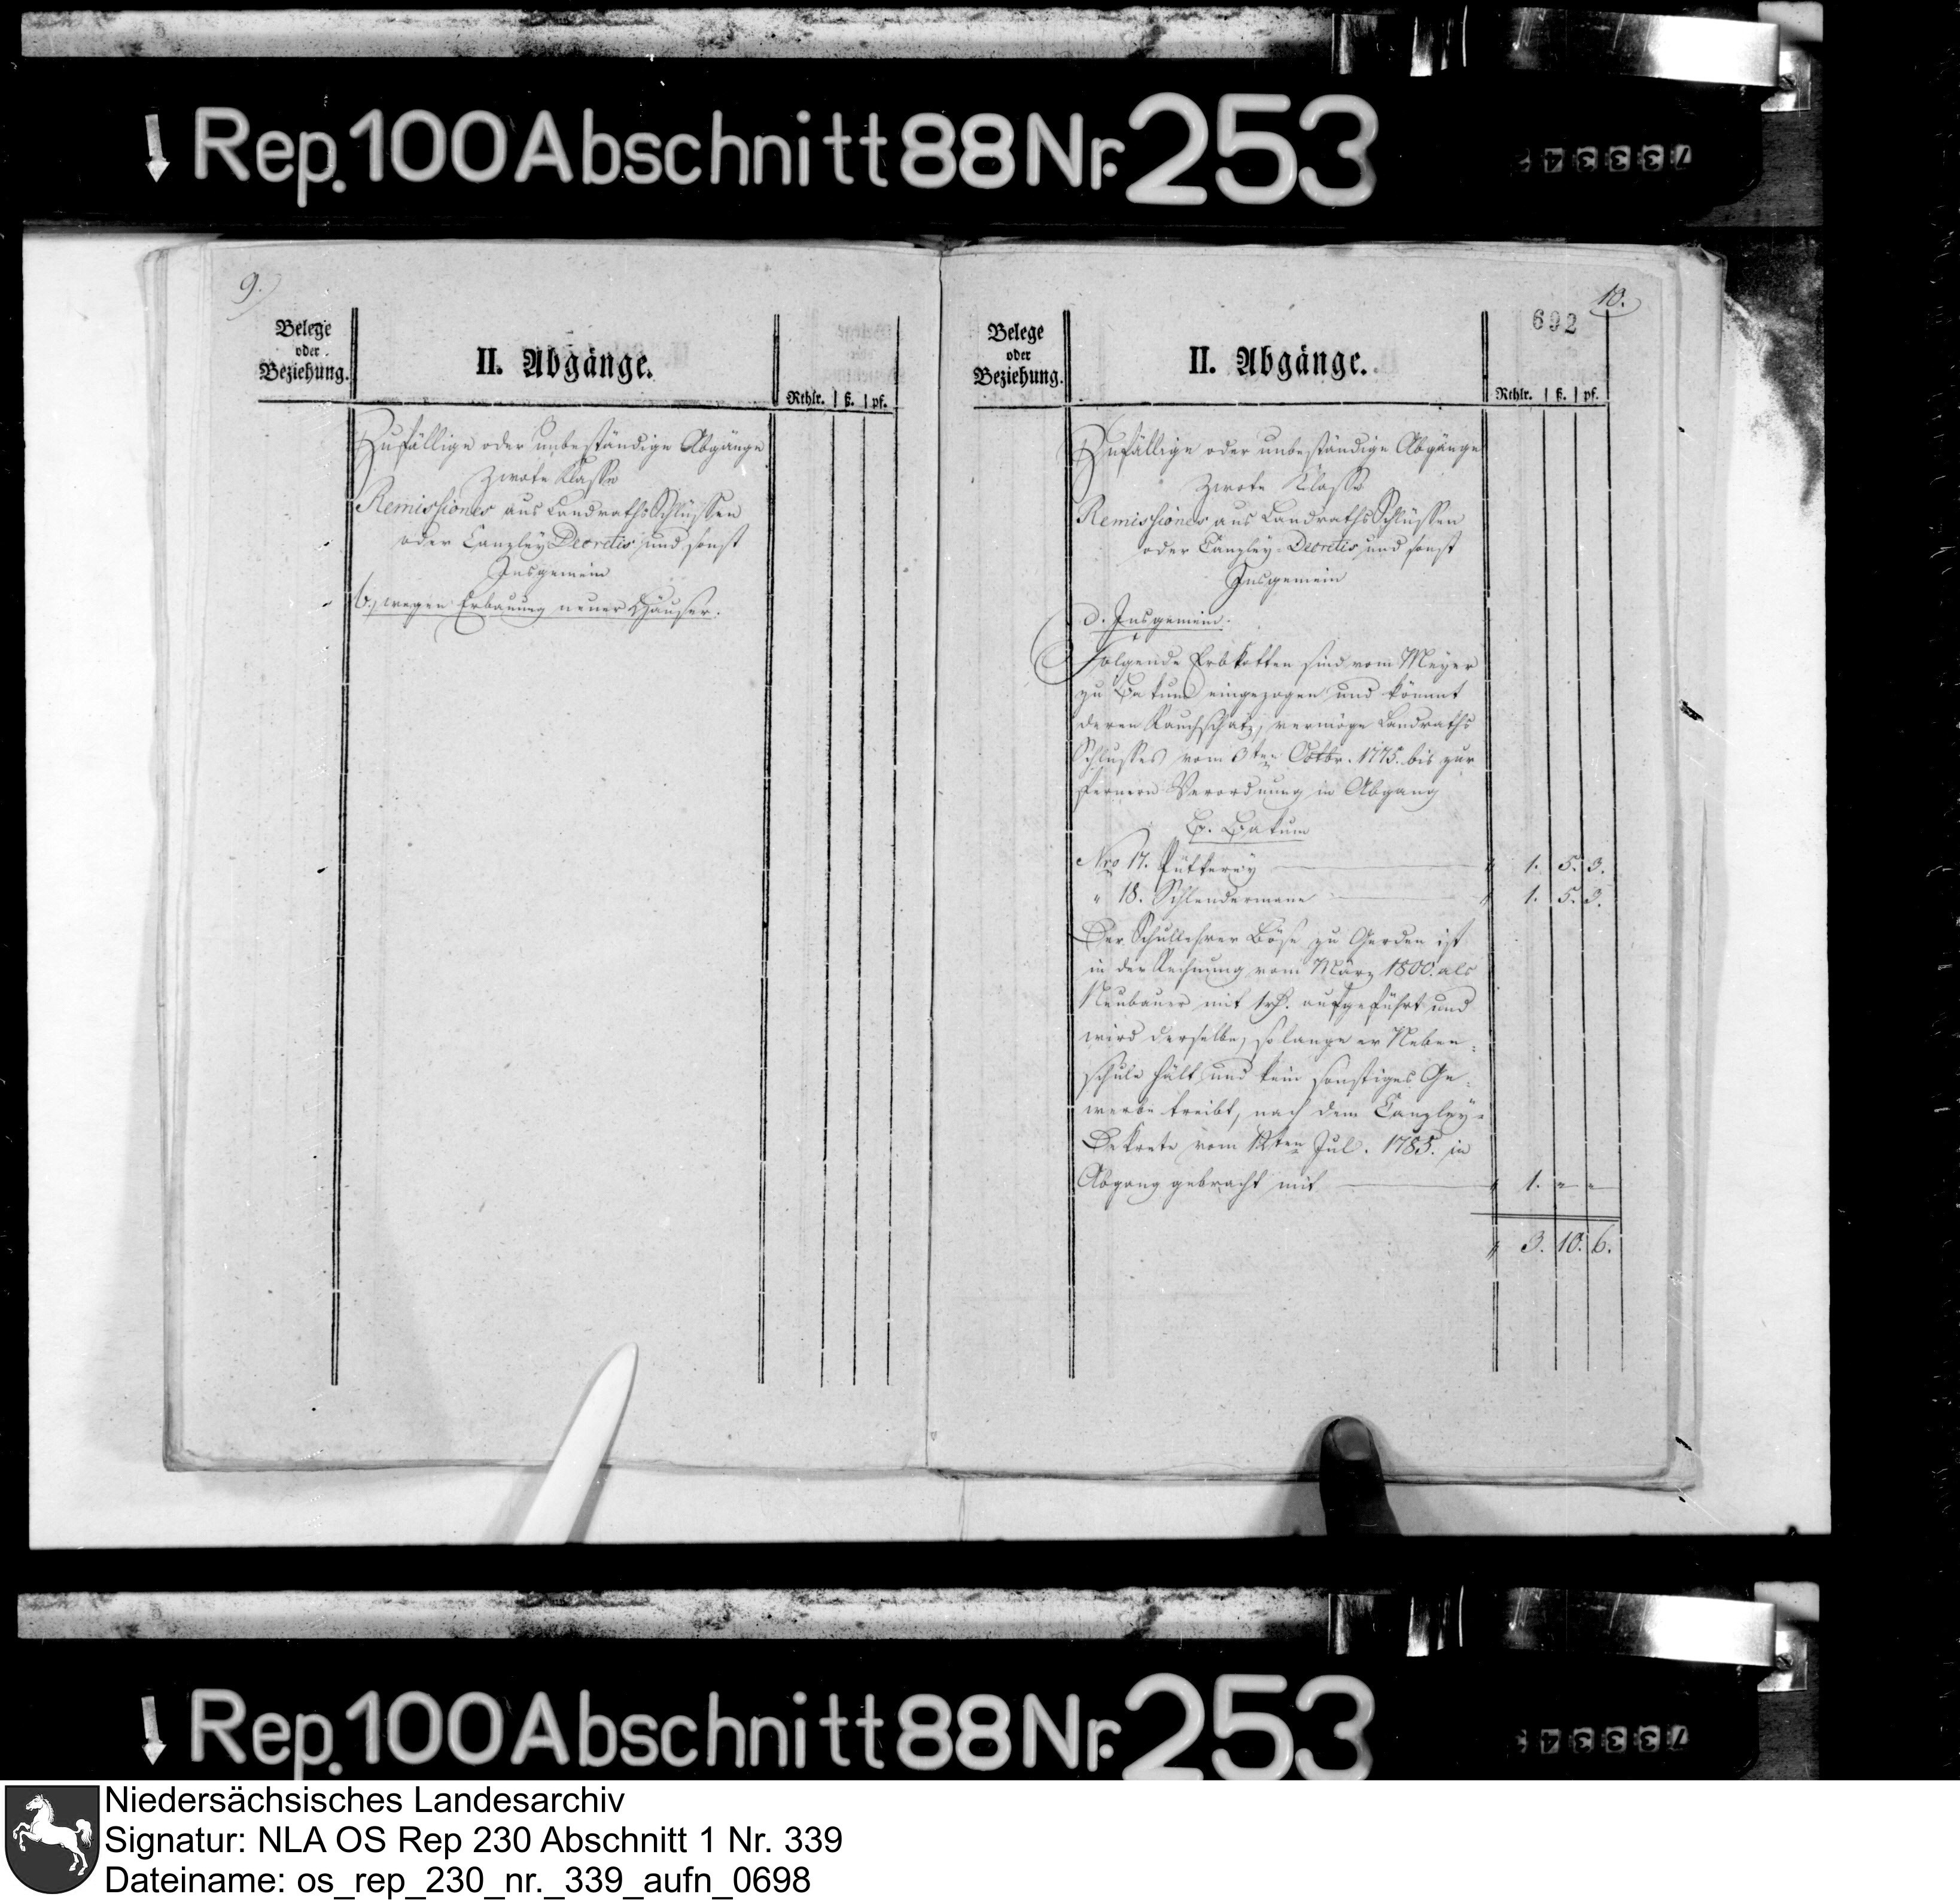 Rep. 100 Abschnitt 88 Nr. 253
9.
Belege
oder
Beziehung.
II. Abgänge.
Rthlr. ß. pf.
Zufällige oder unbeständige Abgänge
Zwote Klasse
Remissiones aus Landraths Schlüssen
oder Canzley Decretis und sonst
Insgemein
b., wegen Erbauung neuer Häuser.
10.
692
Belege
oder
Beziehung.
II. Abgänge.
Rthlr. ß. pf.
Zufällige oder unbeständige Abgänge
Zwote Klasse
Remissiones aus Landraths Schlüssen
oder Canzley-Decretis und sonst
Insgemein
d. Insgemein.
Folgende Erbkotten sind vom Meyer
zu Bakum eingezogen und kömmt
deren Rauchschatz, vermöge Landraths
Schlusses vom 3ten Octbr. 1775. bis zur
fernern Verordnung in Abgang
B. Bakum
Nro 17. 1. 5. 3.
" 18. Schlendermann 1. 5. 3.
Der Schullehrer Böse zu Gerden ist
in der Rechnung vom März 1800. als
Neubauer mit 1 rth. aufgeführt und
wird derselbe, so lange er Neben-
schule hält und kein sonstiges Ge-
werbe treibt, nach dem Canzley-
Dekrete vom 12ten Jul. 1785. in
Abgang gebracht mit 1. " "
3. 10. 6.
Rep. 100 Abschnitt 88 Nr. 253
Niedersächsisches Landesarchiv
Signatur: NLA OS Rep 230 Abschnitt 1 Nr. 339
Dateiname: os_rep_230_nr._339_aufn_0698